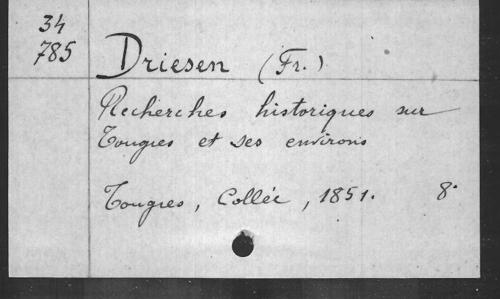 34
785
Driesen (Fr.)
Recherches historiques sur
Tongres et ses environs
Tongres, Collée, 1851. 8°